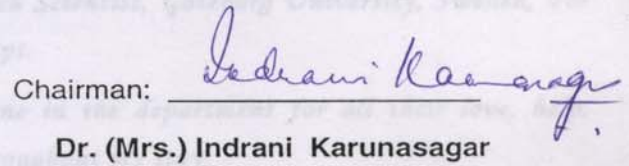 Chairman: Indrani Karunasagar
Dr. (Mrs.) Indrani Karunasagar